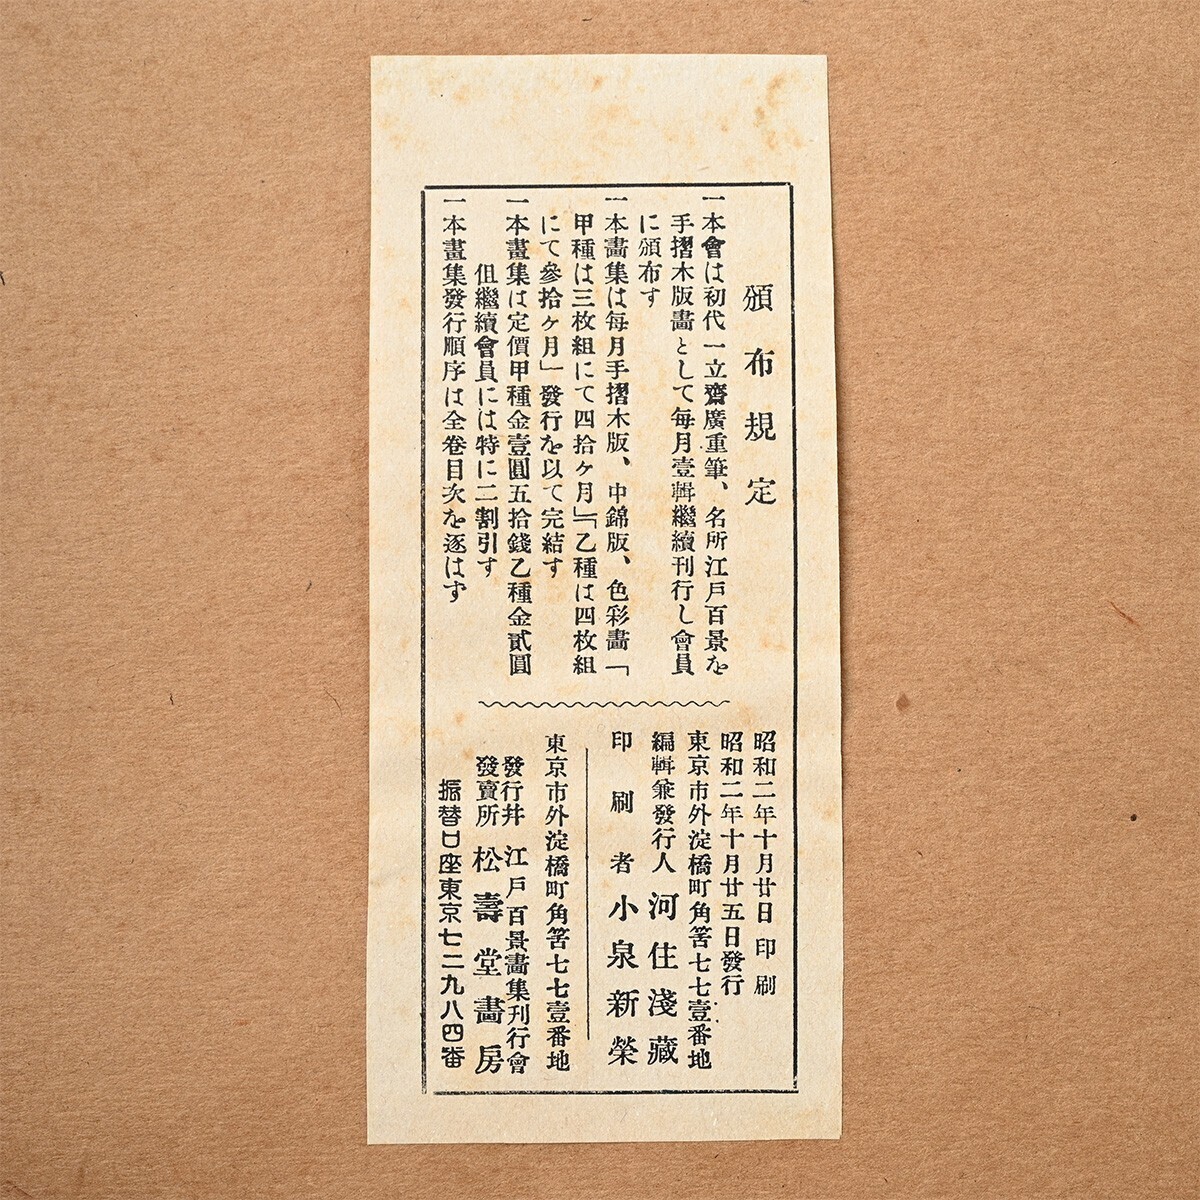 頒布規定
一本會は初代一立齋廣重筆、名所江戸百景を
手摺木版畵として毎月壹輯繼續刊行し會員
に頒布す
一本畵集は毎月手摺木版、中錦版、色彩畵「
甲種は三枚組にて四拾ヶ月」「乙種は四枚組
にて參拾ヶ月」發行を以て完結す
一本畫集は定價甲種金壹圓五拾錢乙種金貳圓
但繼續會員には特に二割引す
一本畫集發行順序は全卷目次を逐はず
昭和二年十月廿日印刷
昭和二年十月廿五日發行
東京市外淀橋町角筈七七壹番地
編輯兼發行人 河住淺藏
印刷者 小泉新榮
東京市外淀橋町角筈七七壹番地
發行并 江戸百景畵集刊行會
發賣所 松壽堂畵房
振替口座東京七二九八四番